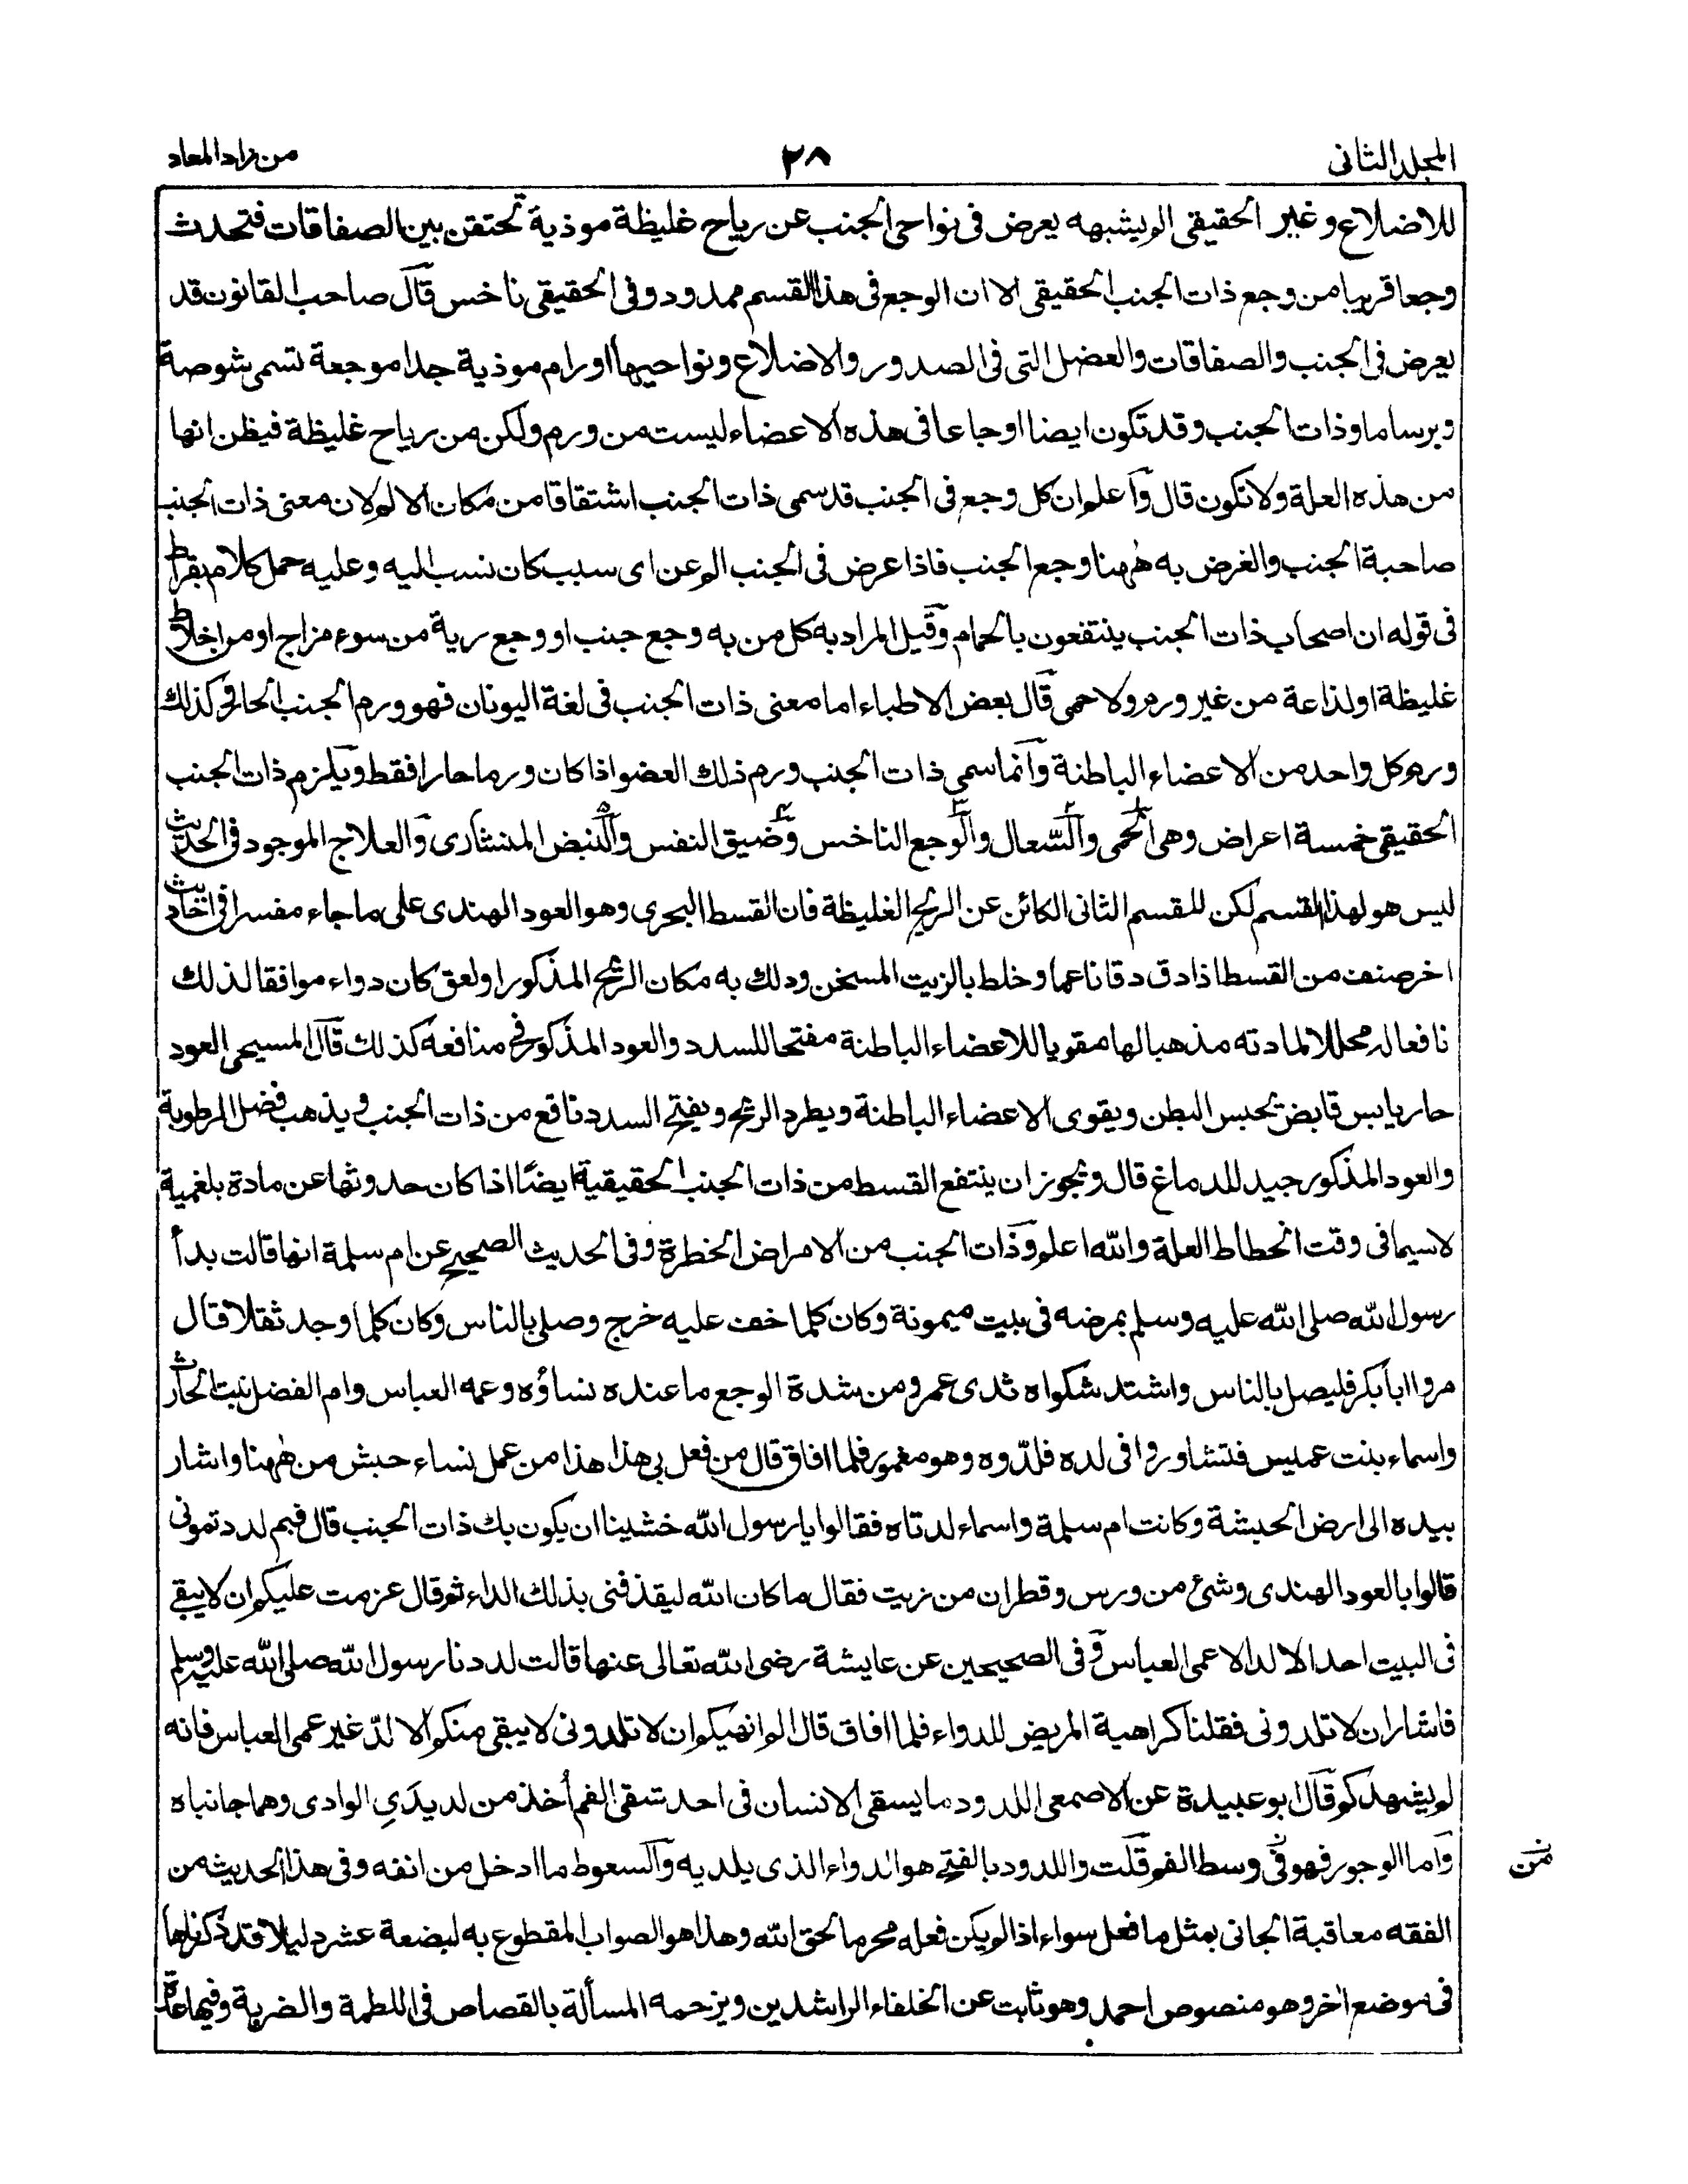 المجلد الثانى
٢٨
من زاد المعاد
للاضلاع وغير الحقيقى الم يشبهه يعرض فى نواحى الجنب عن رياح غليظة موذية تحتقن بين الصفاقات فتحدث
وجعا قريبا من وجع ذات الجنب الحقيقى الا ان الوجع فى هذا القسم ممدود وفى الحقيقى ناخس قال صاحب القانون قد
يعرض فى الجنب والصفاقات والعضل التى فى الصدور والاضلاع ونواحيها اورام موذية جدا موجعة تسمى شوصة
وبرساما وذات الجنب وقد تكون ايضا اوجاعا فى هذه الاعضاء ليست من ورم ولكن من رياح غليظة فيظن انها
من هذه العلة ولا تكون قال واعلم ان كل وجع فى الجنب قد سمى ذات الجنب اشتقاقا من مكان الالم لان معنى ذات الجنب
صاحبة الجنب والغرض به ههنا وجع الجنب فاذا عرض فى الجنب الم عن اى سبب كان نسب اليه وعليه حمل كلام بقراط
فى قوله ان اصحاب ذات الجنب ينتفعون بالحمام وقيل المراد به كل من به وجع جنب او وجع رية من سوء مزاج او من اخلاط
غليظة او لذاعة من غير ورم ولا حمى قال بعض الاطباء اما معنى ذات الجنب فى لغة اليونان فهو ورم الجنب الحار وكذلك
ورم كل واحد من الاعضاء الباطنة وانما سمى ذات الجنب ورم ذلك العضو اذا كان ورما حارا فقط ويلزم ذات الجنب
الحقيقى خمسة اعراض وهى الحمى والسعال والوجع الناخس وضيق النفس والنبض المنشارى والعلاج الموجود فى الحديث
ليس هو لهذا القسم لكن للقسم الثانى الكائن عن الريح الغليظة فان القسط البحرى وهو العود الهندى على ما جاء مفسرا فى احاديث
اخر صنف من القسط اذا دق دقا ناعما وخلط بالزيت المسخن ودلك به مكان الريح المذكور او لعق كان دواء موافقا لذلك
نافعا له محللا لمادته مذهبا لها مقويا للاعضاء الباطنة مفتحا للسدد والعود المذكور فى منافعه كذلك قال المسيحى العود
حار يابس قابض يحبس البطن ويقوى الاعضاء الباطنة ويطرد الريح ويفتح السدد نافع من ذات الجنب ويذهب فضل الرطوبة
والعود المذكور جيد للدماغ قال ويجوز ان ينتفع القسط من ذات الجنب الحقيقية ايضًا اذا كان حدوثها عن مادة بلغمية
لاسيما فى وقت انحطاط العلة والله اعلم وذات الجنب من الامراض الخطرة وفى الحديث الصحيح عن ام سلمة انها قالت بدأ
رسول الله صلى الله عليه وسلم بمرضه فى بيت ميمونة وكان كلما خف عليه خرج وصلى بالناس وكان كلما وجد ثقلا قال
مروا ابا بكر فليصل بالناس واشتد شكواه ثدى عمر ومن شدة الوجع ما عنده نساؤه وعمه العباس وام الفضل بنت الحارث
واسماء بنت عميس فتشاوروا فى لده فلدّوه وهو مغمور فلما افاق قال من فعل بى هذا هذا من عمل نساء حبش من ههنا واشار
بيده الى ارض الحبشة وكانت ام سلمة واسماء لدتاه فقالوا يا رسول الله خشينا ان يكون بك ذات الجنب قال فبم لددتمونى
قالوا بالعود الهندى وشئ من ورس وقطران من زيت فقال ما كان الله ليقذفنى بذلك الداء ثم قال عزمت عليكم ان لا يبقى
فى البيت احد الا لد الا عمى العباس وفى الصحيحين عن عايشة رضى الله تعالى عنها قالت لددنا رسول الله صلى الله عليه وسلم
فاشار ان لا تلدونى فقلنا كراهية المريض للدواء فلما افاق قال الم انهيكم ان لا تلدونى لا يبقى منكم الا لدّ غير عمى العباس فانه
لم يشهدكم قال ابو عبيدة عن الاصمعى اللدود ما يسقى الانسان فى احد شقى الفم أخذ من لديدَىِ الوادى وهما جانباه
واما الوجور فهو فى وسط الفم قلت واللدود بالفتح هو الدواء الذى يلد به والسعوط ما ادخل من انفه وفى هذا الحديث من
من
الفقه معاقبة الجانى بمثل ما فعل سواء اذا لم يكن فعله محرما لحق الله وهذا هو الصواب المقطوع به لبضعة عشر دليلا قد ذكرناها
فى موضع اخر وهو منصوص احمد وهو ثابت عن الخلفاء الراشدين ويزحمه المسألة بالقصاص فى اللطمة والضربة وفيها عدة